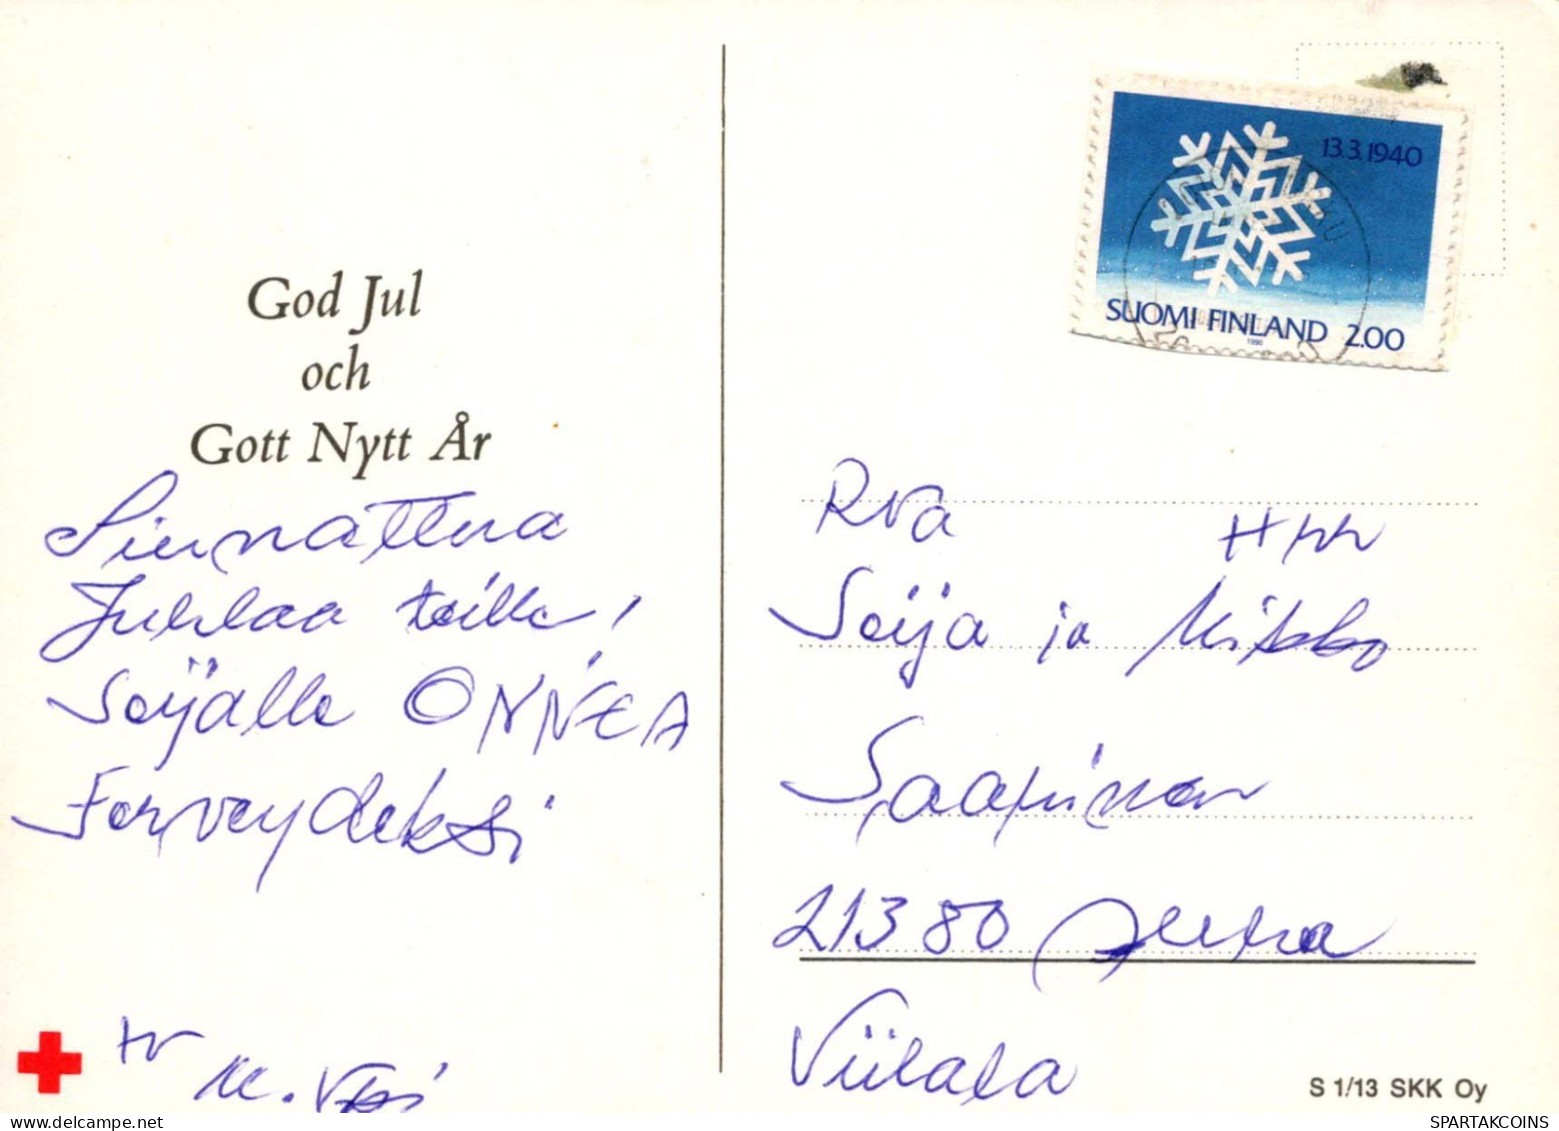 God Jul
och
Gott Nytt År
Siunattua
Juhlaa teille!
Seijalle ONNEA
Terveydeksi
tv
M.
13.3.1940
SUOMI FINLAND 2.00
1990
Rva Hrr
Seija ja Mikko
Saarinen
21380 Aura
Viilala
S 1/13 SKK Oy
SPARTAKCOINS